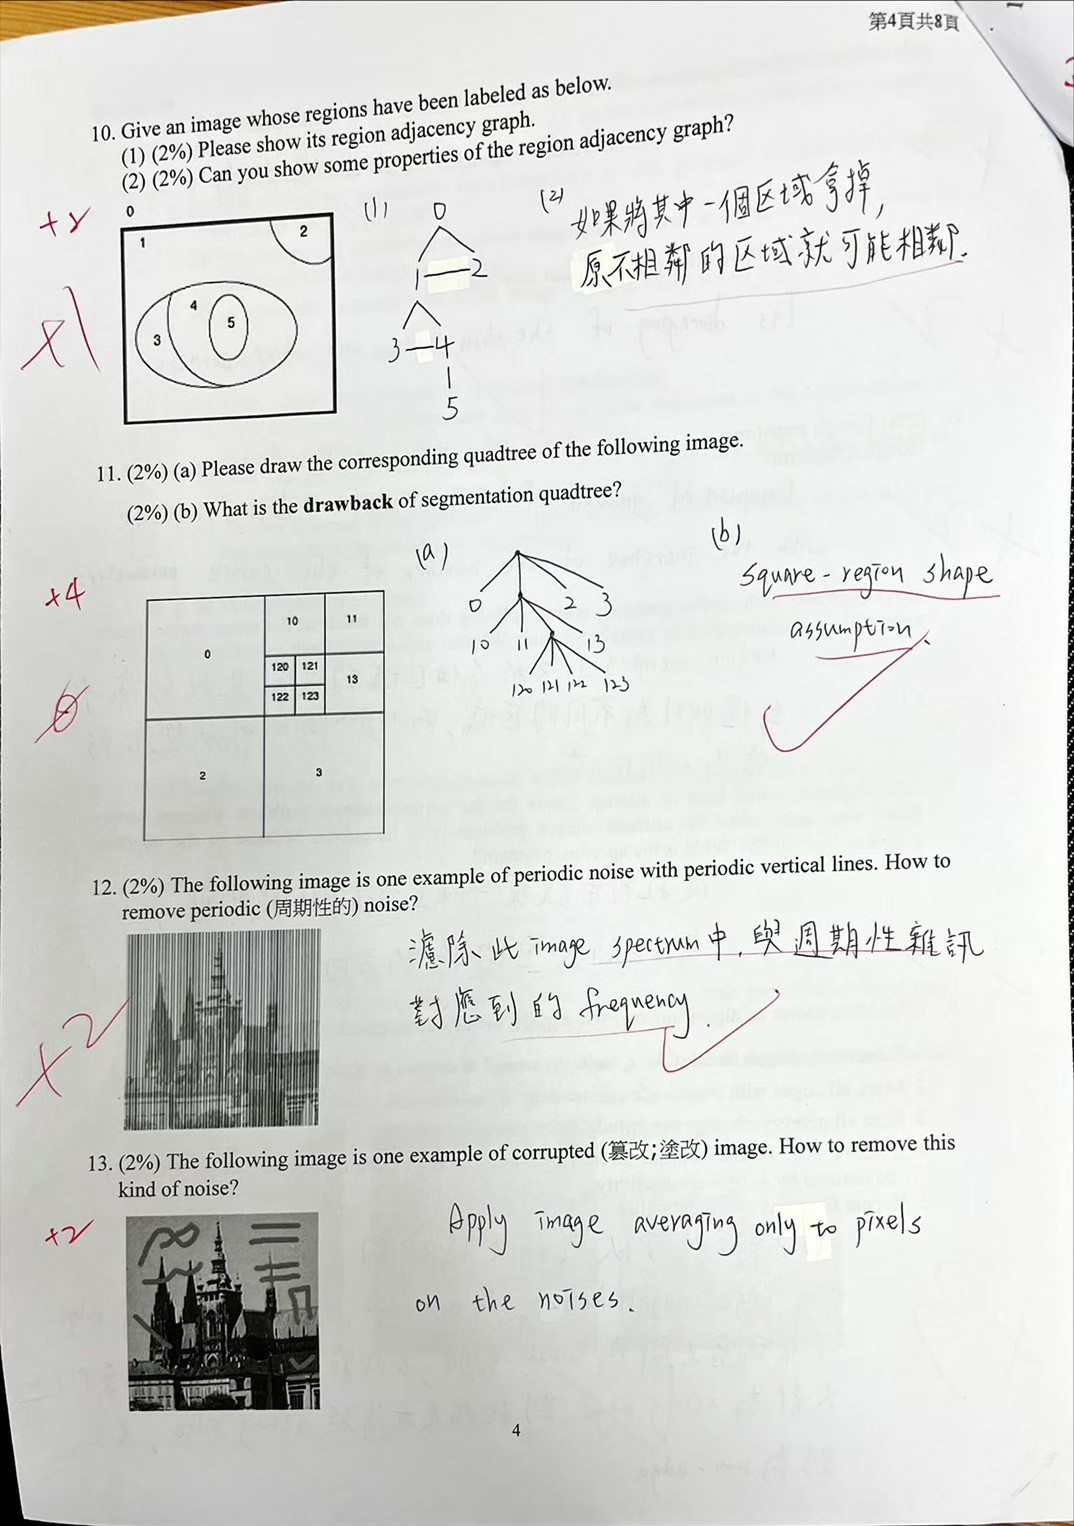 第4頁共8頁
10. Give an image whose regions have been labeled as below.
(1) (2%) Please show its region adjacency graph.
(2) (2%) Can you show some properties of the region adjacency graph?
0
1
2
3
4
5
(1)
0
1—2
3—4
5
(2) 如果將其中一個区域拿掉,
原不相鄰的区域就可能相鄰.
11. (2%) (a) Please draw the corresponding quadtree of the following image.
(2%) (b) What is the drawback of segmentation quadtree?
+4
0
10
11
120 121
122 123
13
2
3
(a)
0 2 3
10 11 13
120 121 122 123
(b)
square-region shape
assumption.
12. (2%) The following image is one example of periodic noise with periodic vertical lines. How to
remove periodic (周期性的) noise?
濾除此 image spectrum中, 與週期性雜訊
對應到的 frequency.
13. (2%) The following image is one example of corrupted (篡改;塗改) image. How to remove this
kind of noise?
+2
Apply image averaging only to pixels
on the noises.
4